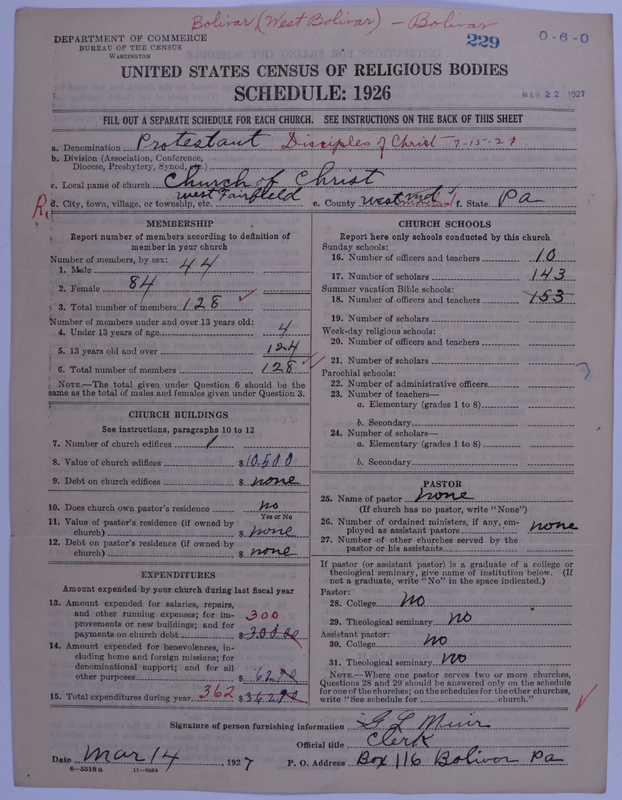 Bolivar (West Bolivar) - Bolivar
DEPARTMENT OF COMMERCE
BUREAU OF THE CENSUS
WASHINGTON
229
0-6-0
UNITED STATES CENSUS OF RELIGIOUS BODIES
SCHEDULE: 1926
MAR 22 1927
FILL OUT A SEPARATE SCHEDULE FOR EACH CHURCH. SEE INSTRUCTIONS ON THE BACK OF THIS SHEET
a. Denomination Protestant Disciples of Christ 7-15-27
b. Division (Association, Conference, Diocese, Presbytery, Synod, etc.)
c. Local name of church Church of Christ
d. City, town, village, or township, etc. West Fairfield e. County Westmoreland f. State Pa
R.
MEMBERSHIP
Report number of members according to definition of member in your church
Number of members, by sex:
1. Male 44
2. Female 84
3. Total number of members 128
Number of members under and over 13 years old:
4. Under 13 years of age 4
5. 13 years old and over 124
6. Total number of members 128
NOTE.—The total given under Question 6 should be the same as the total of males and females given under Question 3.
CHURCH BUILDINGS
See instructions, paragraphs 10 to 12
7. Number of church edifices 1
8. Value of church edifices $ 10,500
9. Debt on church edifices $ none
10. Does church own pastor's residence no
Yes or No
11. Value of pastor's residence (if owned by church) $ none
12. Debt on pastor's residence (if owned by church) $ none
EXPENDITURES
Amount expended by your church during last fiscal year
13. Amount expended for salaries, repairs, and other running expenses; for improvements or new buildings; and for payments on church debt 300 $ 300.00
14. Amount expended for benevolences, including home and foreign missions; for denominational support; and for all other purposes $ 62.90
15. Total expenditures during year 362 $ 362.90
CHURCH SCHOOLS
Report here only schools conducted by this church
Sunday schools:
16. Number of officers and teachers 10
17. Number of scholars 143
Summer vacation Bible schools:
18. Number of officers and teachers 153
19. Number of scholars
Week-day religious schools:
20. Number of officers and teachers
21. Number of scholars
Parochial schools:
22. Number of administrative officers
23. Number of teachers—
a. Elementary (grades 1 to 8)
b. Secondary
24. Number of scholars—
a. Elementary (grades 1 to 8)
b. Secondary
PASTOR
25. Name of pastor none
(If church has no pastor, write "None")
26. Number of ordained ministers, if any, employed as assistant pastors none
27. Number of other churches served by the pastor or his assistants
If pastor (or assistant pastor) is a graduate of a college or theological seminary, give name of institution below. (If not a graduate, write "No" in the space indicated.)
Pastor:
28. College No
29. Theological seminary No
Assistant pastor:
30. College No
31. Theological seminary No
NOTE.—Where one pastor serves two or more churches, Questions 28 and 29 should be answered only on the schedule for one of the churches; on the schedules for the other churches, write "See schedule for church."
Signature of person furnishing information G L Muir
Official title Clerk
Date Mar 14, 1927 P. O. Address Box 116 Bolivar Pa
8—5518a 11—9684